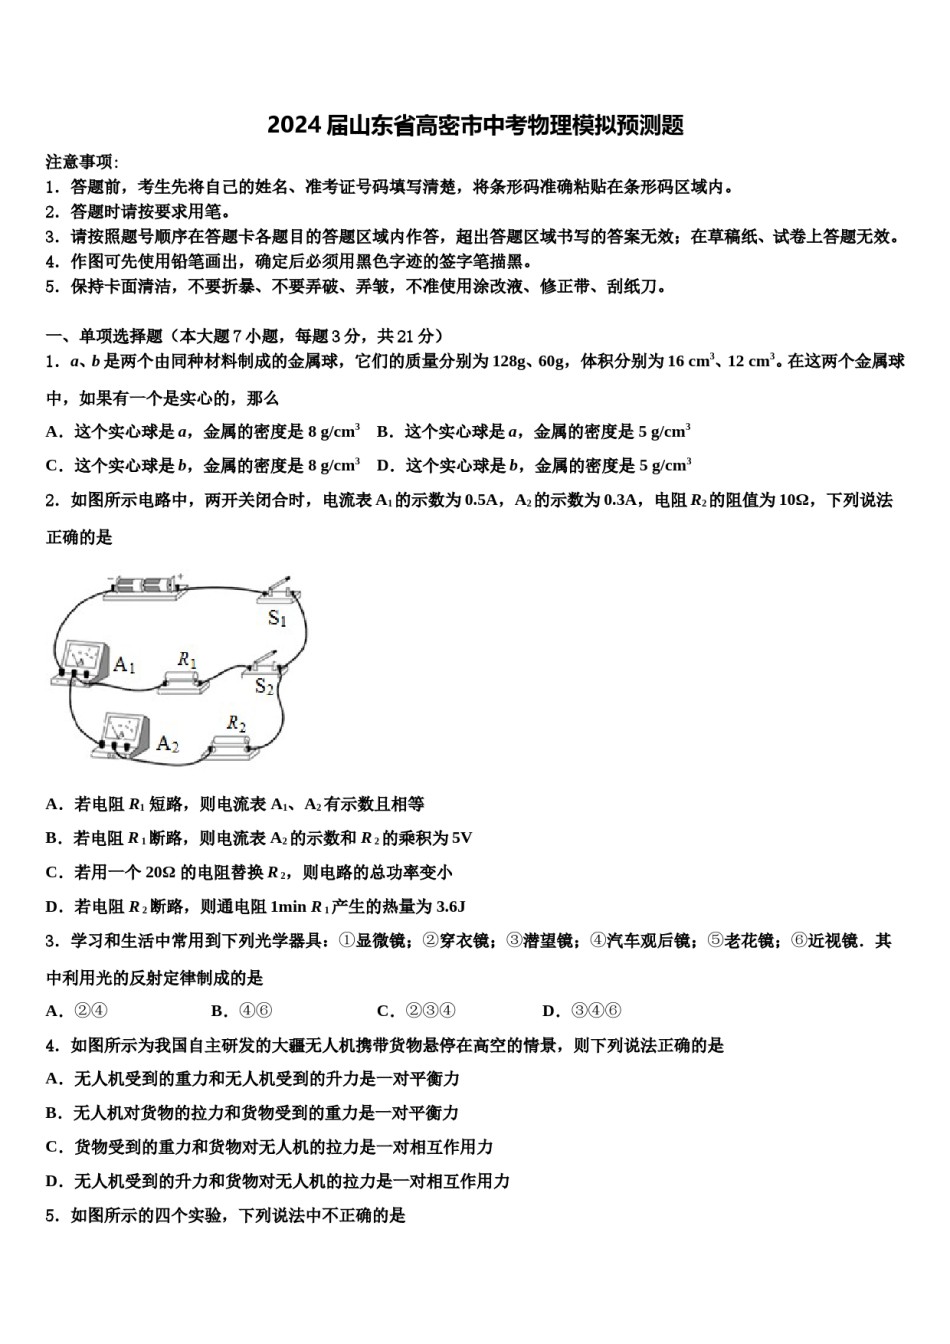 2024 届山东省高密市中考物理模拟预测题
注意事项:
1．答题前，考生先将自己的姓名、准考证号码填写清楚，将条形码准确粘贴在条形码区域内。
2．答题时请按要求用笔。
3．请按照题号顺序在答题卡各题目的答题区域内作答，超出答题区域书写的答案无效；在草稿纸、试卷上答题无效。
4．作图可先使用铅笔画出，确定后必须用黑色字迹的签字笔描黑。
5．保持卡面清洁，不要折暴、不要弄破、弄皱，不准使用涂改液、修正带、刮纸刀。
一、单项选择题（本大题 7 小题，每题 3 分，共 21 分）
1．a、b 是两个由同种材料制成的金属球，它们的质量分别为 128g、60g，体积分别为 16 cm³、12 cm³。在这两个金属球
中，如果有一个是实心的，那么
A．这个实心球是 a，金属的密度是 8 g/cm³ B．这个实心球是 a，金属的密度是 5 g/cm³
C．这个实心球是 b，金属的密度是 8 g/cm³ D．这个实心球是 b，金属的密度是 5 g/cm³
2．如图所示电路中，两开关闭合时，电流表 A₁的示数为 0.5A，A₂的示数为 0.3A，电阻 R₂的阻值为 10Ω，下列说法
正确的是
− +
S₁
A₁ R₁
S₂
R₂
A₂
A．若电阻 R₁ 短路，则电流表 A₁、A₂有示数且相等
B．若电阻 R₁断路，则电流表 A₂的示数和 R₂的乘积为 5V
C．若用一个 20Ω 的电阻替换 R₂，则电路的总功率变小
D．若电阻 R₂断路，则通电阻 1min R₁产生的热量为 3.6J
3．学习和生活中常用到下列光学器具：①显微镜；②穿衣镜；③潜望镜；④汽车观后镜；⑤老花镜；⑥近视镜．其
中利用光的反射定律制成的是
A．②④ B．④⑥ C．②③④ D．③④⑥
4．如图所示为我国自主研发的大疆无人机携带货物悬停在高空的情景，则下列说法正确的是
A．无人机受到的重力和无人机受到的升力是一对平衡力
B．无人机对货物的拉力和货物受到的重力是一对平衡力
C．货物受到的重力和货物对无人机的拉力是一对相互作用力
D．无人机受到的升力和货物对无人机的拉力是一对相互作用力
5．如图所示的四个实验，下列说法中不正确的是